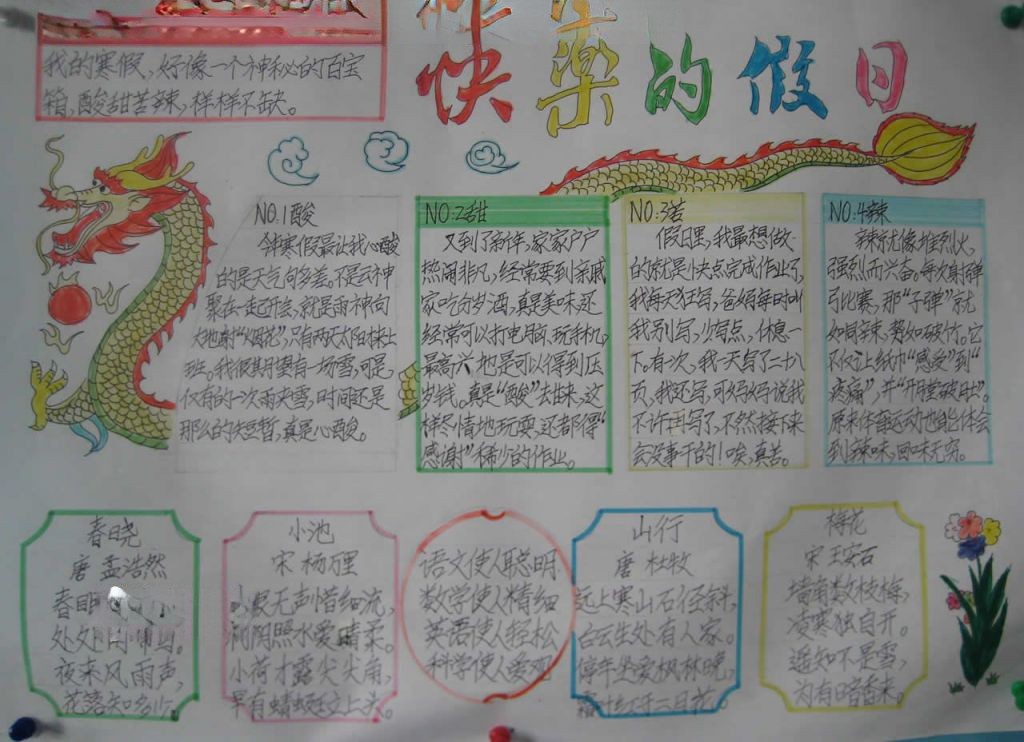 快乐的假日
我的寒假,好像一个神秘的百宝
箱,酸甜苦辣,样样不缺。
NO.1酸
今年寒假最让我心酸
的是天气向多差。不是云神
聚在一起开会,就是雨神向
大地射“烟花”,只有两天太阳村上
班。我很期望有一场雪,可是,
仅有的一次雨夹雪,时间还是
那么的太短暂,真是心酸。
NO:2甜
又到了新年,家家户户
热闹非凡,经常要到亲戚
家吃分岁酒,真是美味,还
经常可以打电脑,玩手机,
最高兴地是可以得到压
岁钱。真是“酸”去甜来,这
样尽情地玩耍,还都得“
感谢”稀少的作业。
NO:3苦
假日里,我最想做
的就是快点完成作业了,
我每天狂写,爸妈每时叫
我别写,少写点,休息一
下。有次,我一天写了二十八
页,我还写,可妈妈说我
不许再写了,不然接下来
会没事干的!唉,真苦。
NO:4辣
辣就像堆烈火,
强烈而兴奋。每次射弹
弓比赛,那“子弹”就
如同辣,势如破竹。它
不仅让纸巾“感受”到“
疼痛”,并“开膛破肚”。
原来体育运动也能体会
到辣味,回味无穷。
春晓
唐 孟浩然
春眠
处处闻啼鸟。
夜来风雨声,
花落知多少。
小池
宋 杨万里
泉眼无声惜细流,
树阴照水爱晴柔。
小荷才露尖尖角,
早有蜻蜓立上头。
语文使人聪明
数学使人精细
英语使人轻松
科学使人爱观
山行
唐 杜牧
远上寒山石径斜,
白云生处有人家。
停车坐爱枫林晚,
霜叶红于二月花。
梅花
宋 王安石
墙角数枝梅,
凌寒独自开。
遥知不是雪,
为有暗香来。